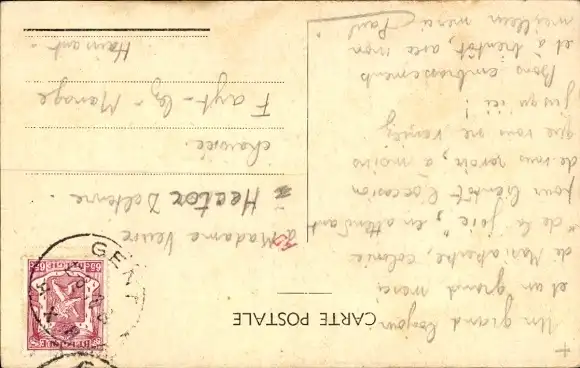 CARTE POSTALE
Un grand bonjour
et un grand merci
de Mariakerke, colonie
"de la joie", en attendant
pour bientôt l'occasion
de vous revoir, à moins
que vous ne veniez
jusqu'ici !
Bons embrassements
et à bientôt, avec mon
meilleur merci Paul
à Madame Veuve
Hector Delterre.
chaussée.
Fayt-lez-Manage
Hainaut.
GENT
BELGIE